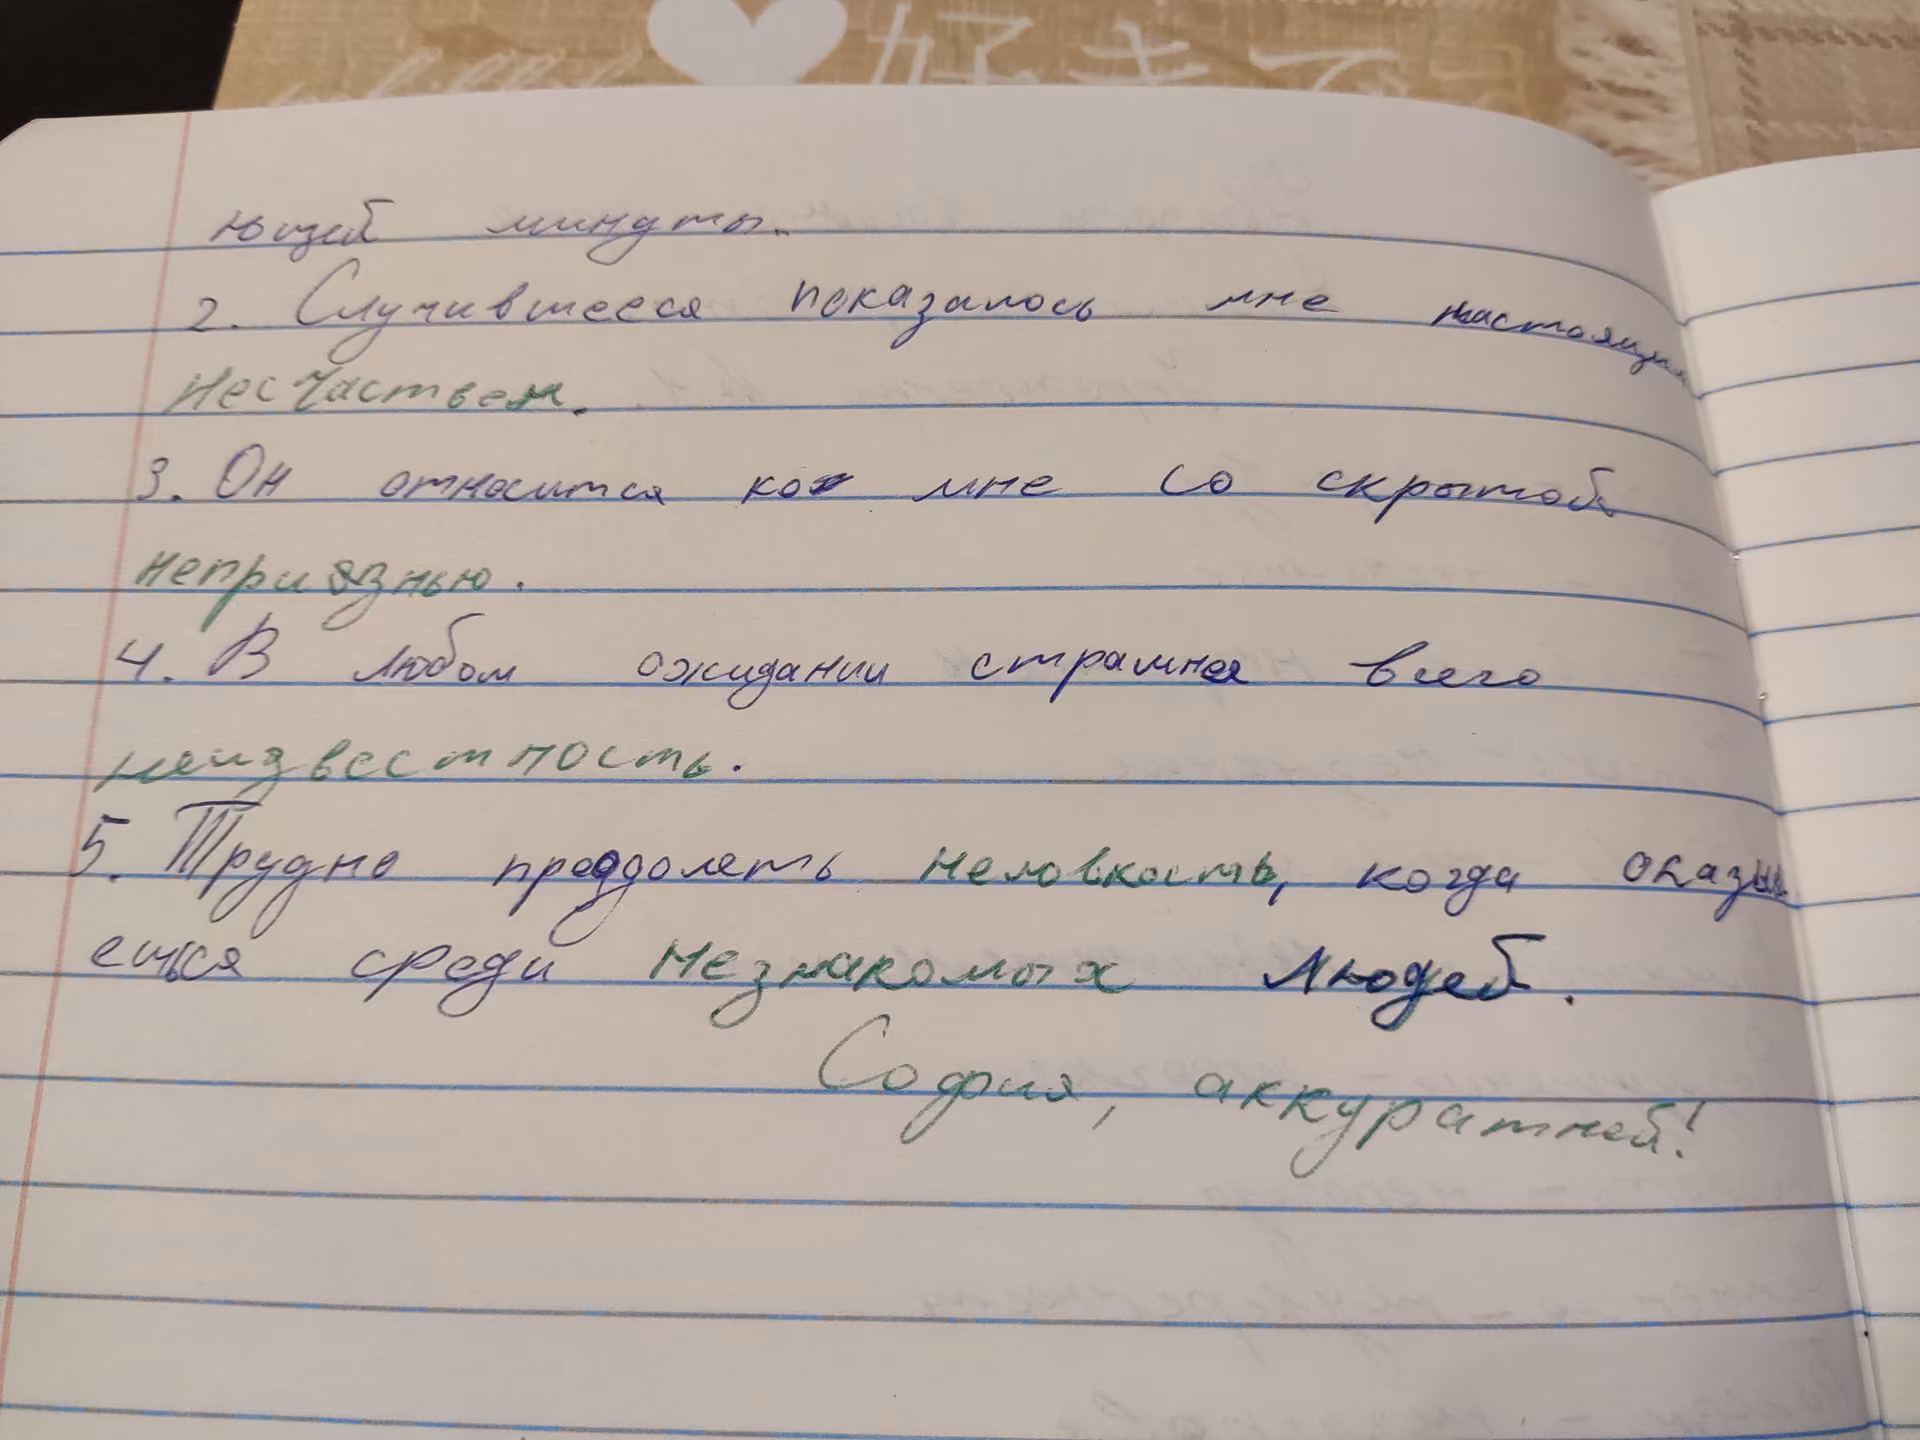 好き
ющей минуты.
2. Случившееся показалось мне настоящим
несчастьем.
3. Он относится ко мне со скрытой
неприязнью.
4. В любом ожидании страшнея всего
неизвестность.
5. Трудно преодолеть неловкость, когда оказыва
ешься среди незнакомых людей.
София, аккуратней!